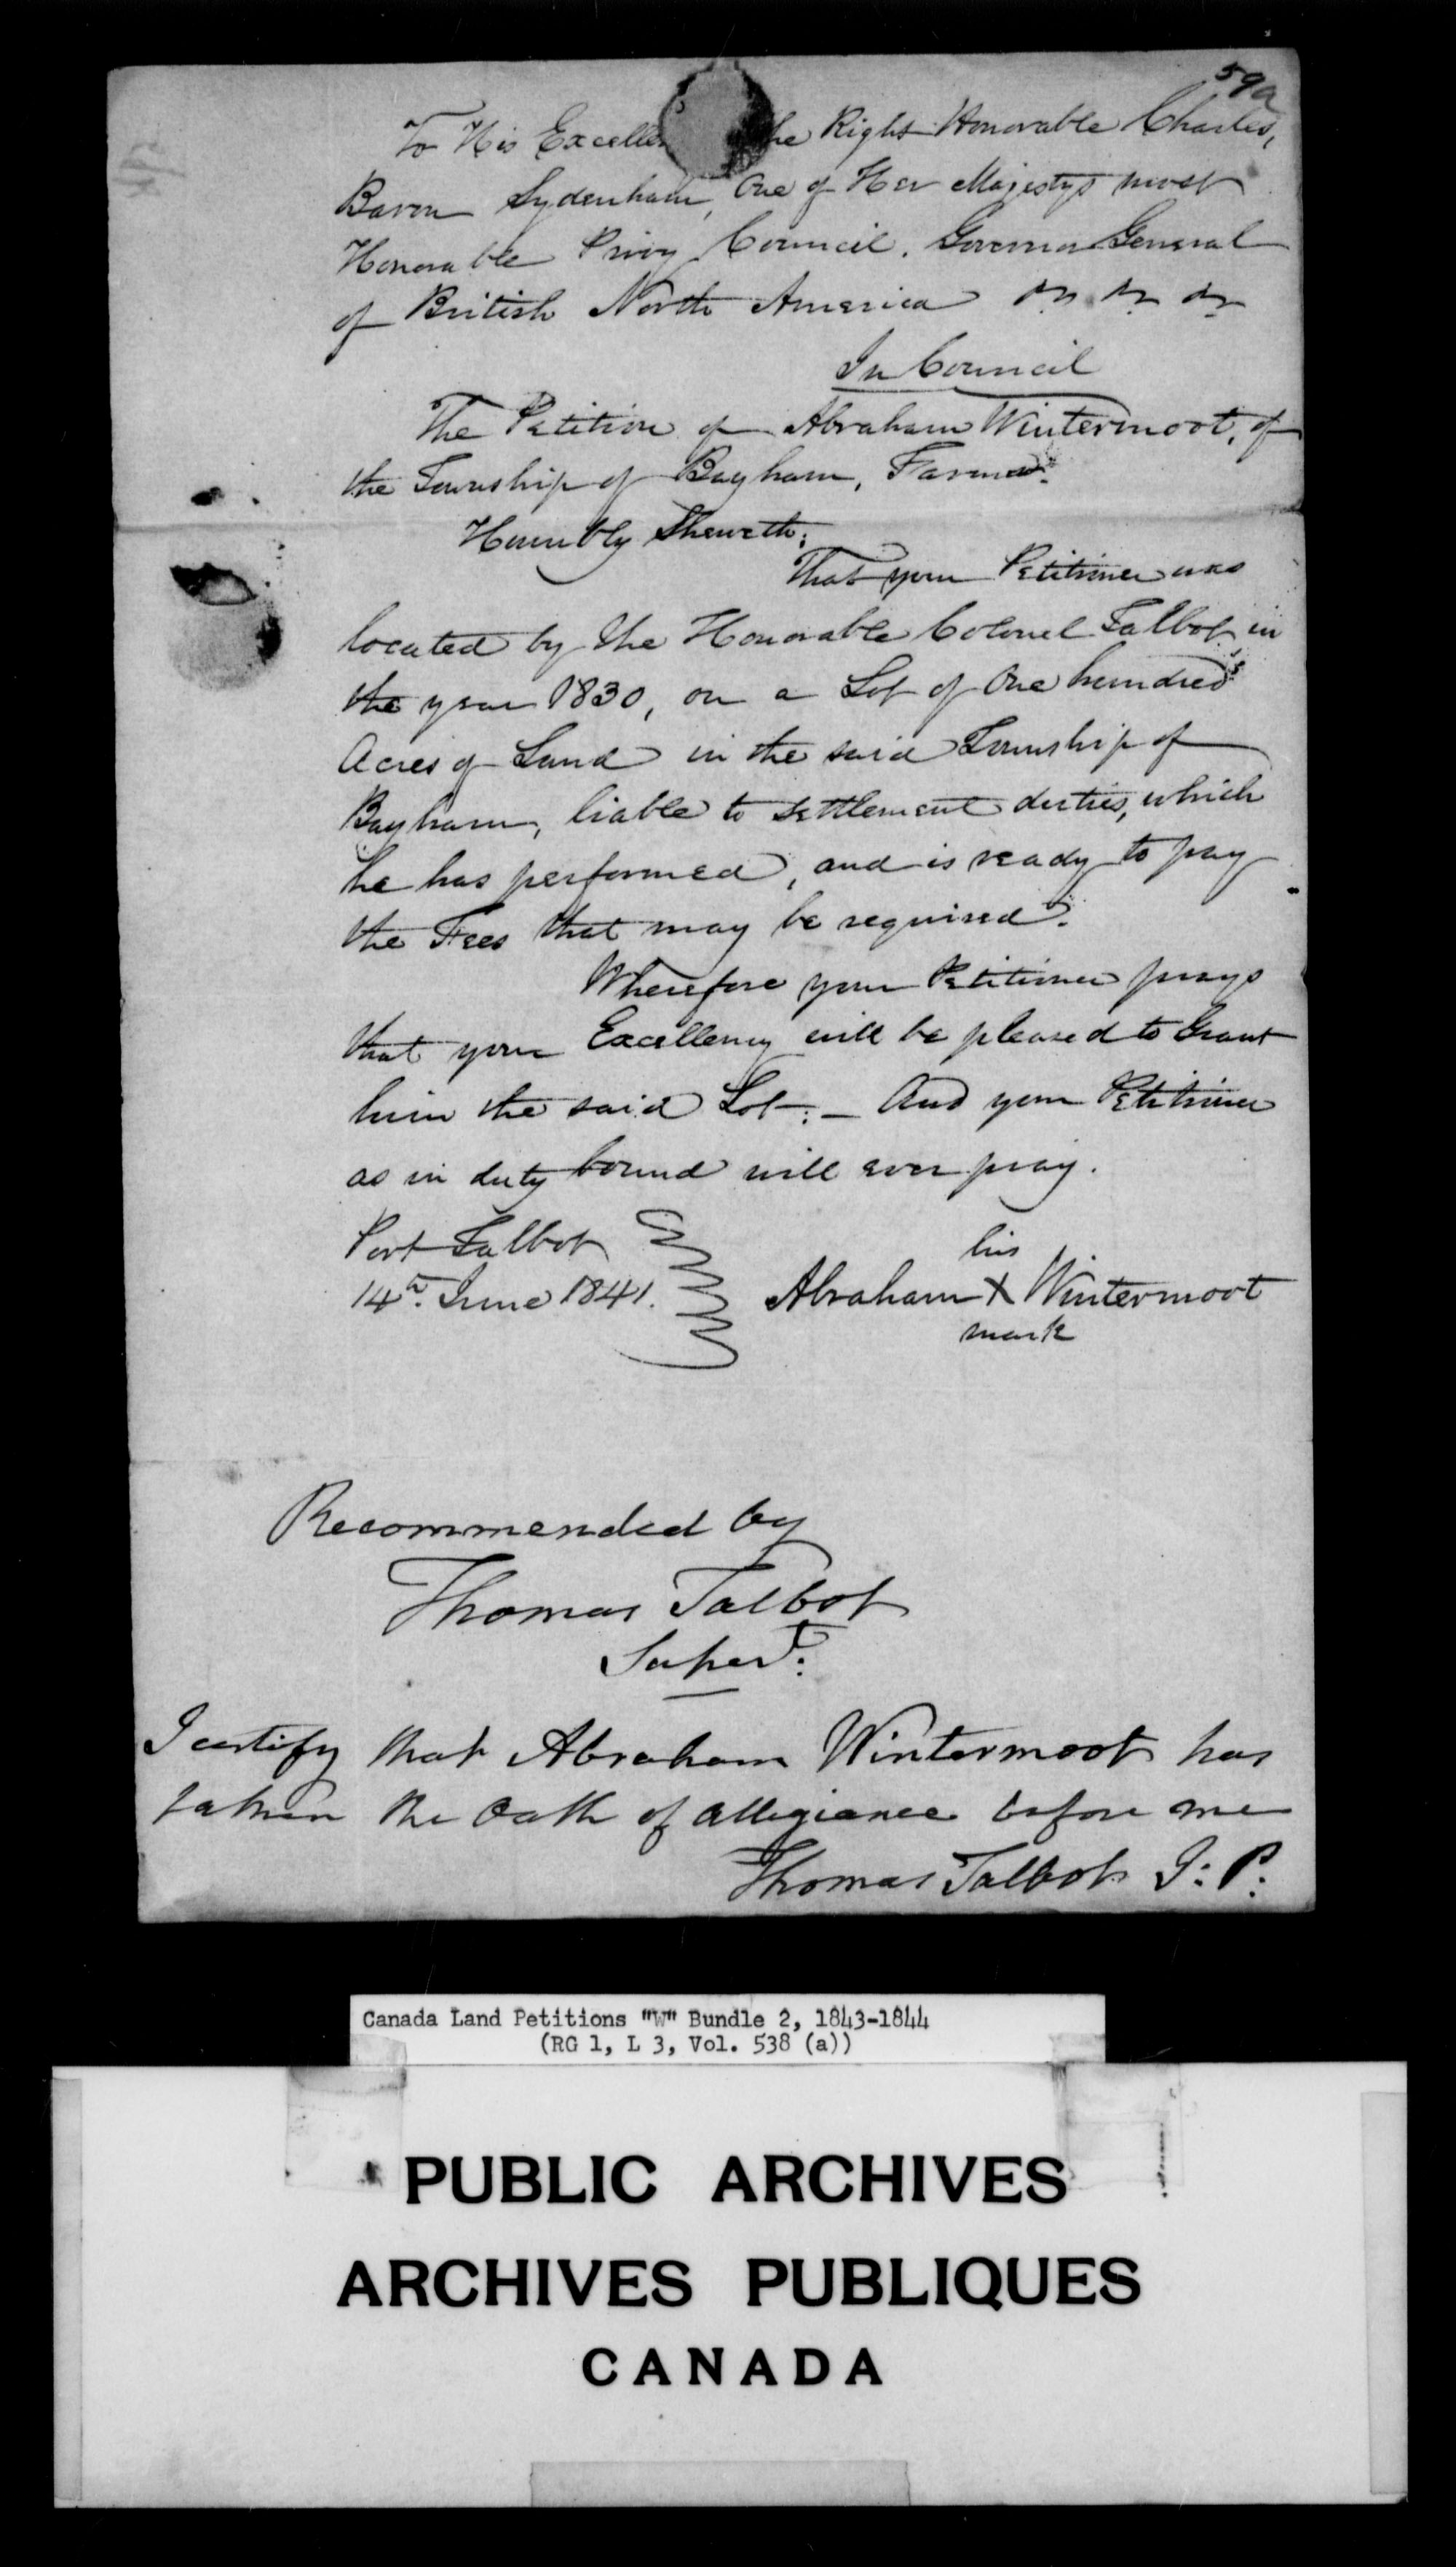 59a
To His Excellen he Right Honorable Charles,
Baron Sydenham, One of Her Majestys most
Honorable Privy Council. Governor General
of British North America &c &c &c
In Council
The Petition of Abraham Wintermoot, of
the Township of Bayham, Farmer.
Humbly Sheweth;
That your Petitioner was
located by the Honorable Colonel Talbot in
the year 1830, on a Lot of One hundred
Acres of Land in the said Township of
Bayham, liable to settlement duties, which
he has performed, and is ready to pay
the Fees that may be required.
Wherefore your Petitioner prays
that your Excellency will be pleased to Grant
him the said Lot:— And your Petitioner
as in duty bound will ever pray.
Port Talbot
14th. June 1841.
his
Abraham X Wintermoot
mark
Recommended by
Thomas Talbot
Supert:
I certify that Abraham Wintermoot has
taken the Oath of allegiance before me
Thomas Talbot J: P:
Canada Land Petitions "W" Bundle 2, 1843-1844
(RG 1, L 3, Vol. 538 (a))
PUBLIC ARCHIVES
ARCHIVES PUBLIQUES
CANADA